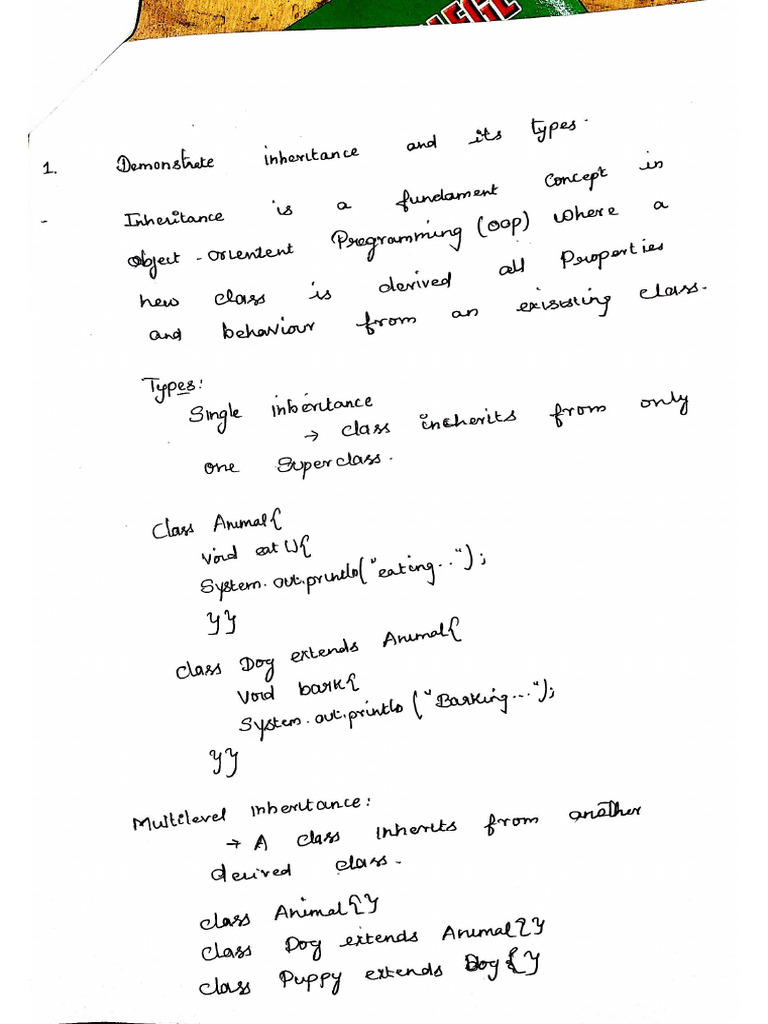 LEGE
1. Demonstrate inheritance and its types.
- Inheritance is a fundament concept in
object-orientent Programming (OOP) where a
new class is derived all Properties
and behaviour from an exissting class.
Types:
Single inheritance
→ class inherits from only
one Superclass.
Class Animal{
void eat (){
System.out.println("eating..");
}}
class Dog extends Animal{
void bark{
System.out.println ("Barking...");
}}
Multilevel inheritance:
→ A class inherits from another
derived class.
class Animal{}
class Dog extends Animal{}
class Puppy extends Dog{}